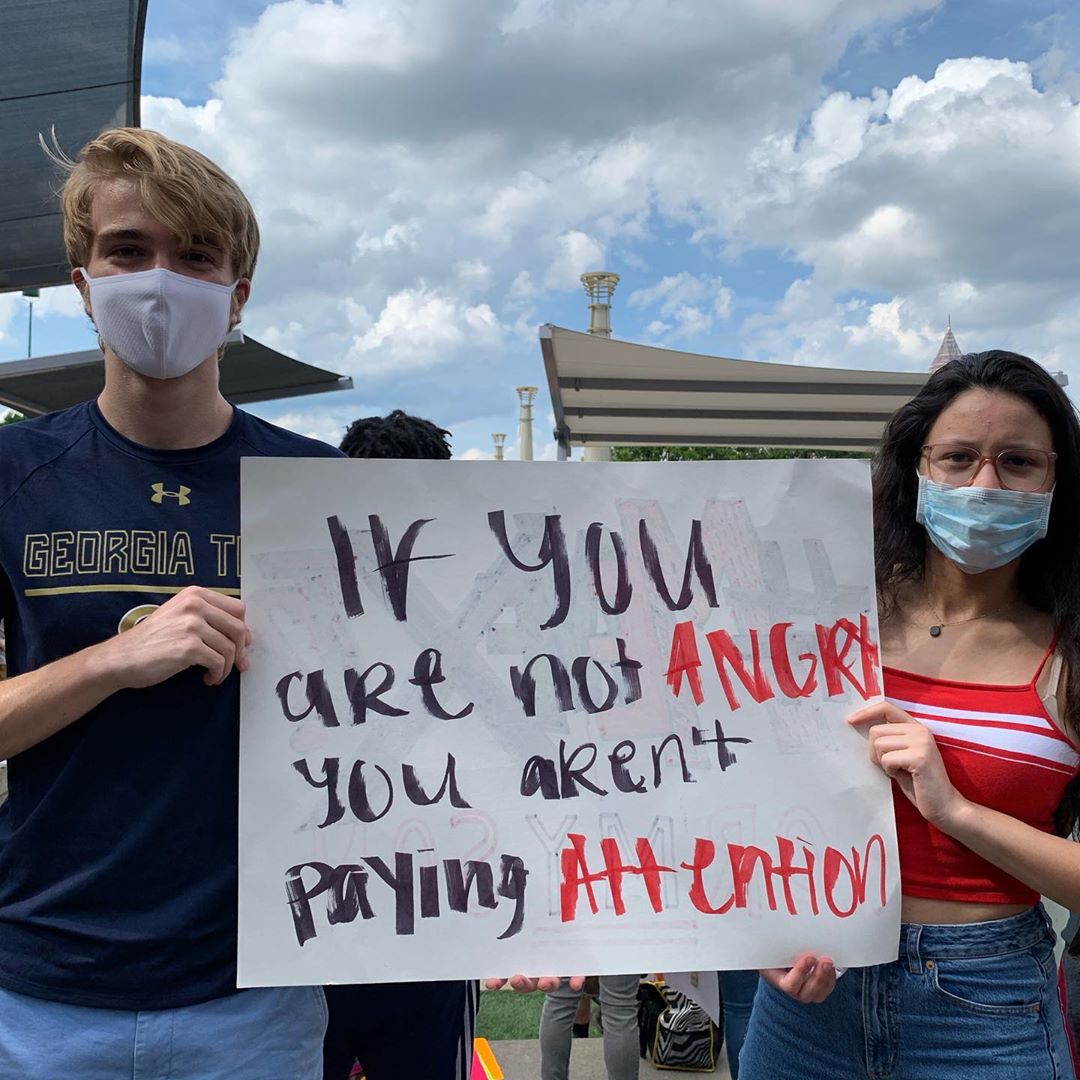 GEORGIA T
IF YOU
aRe not ANGRY
YOU aRen't
paying Attention